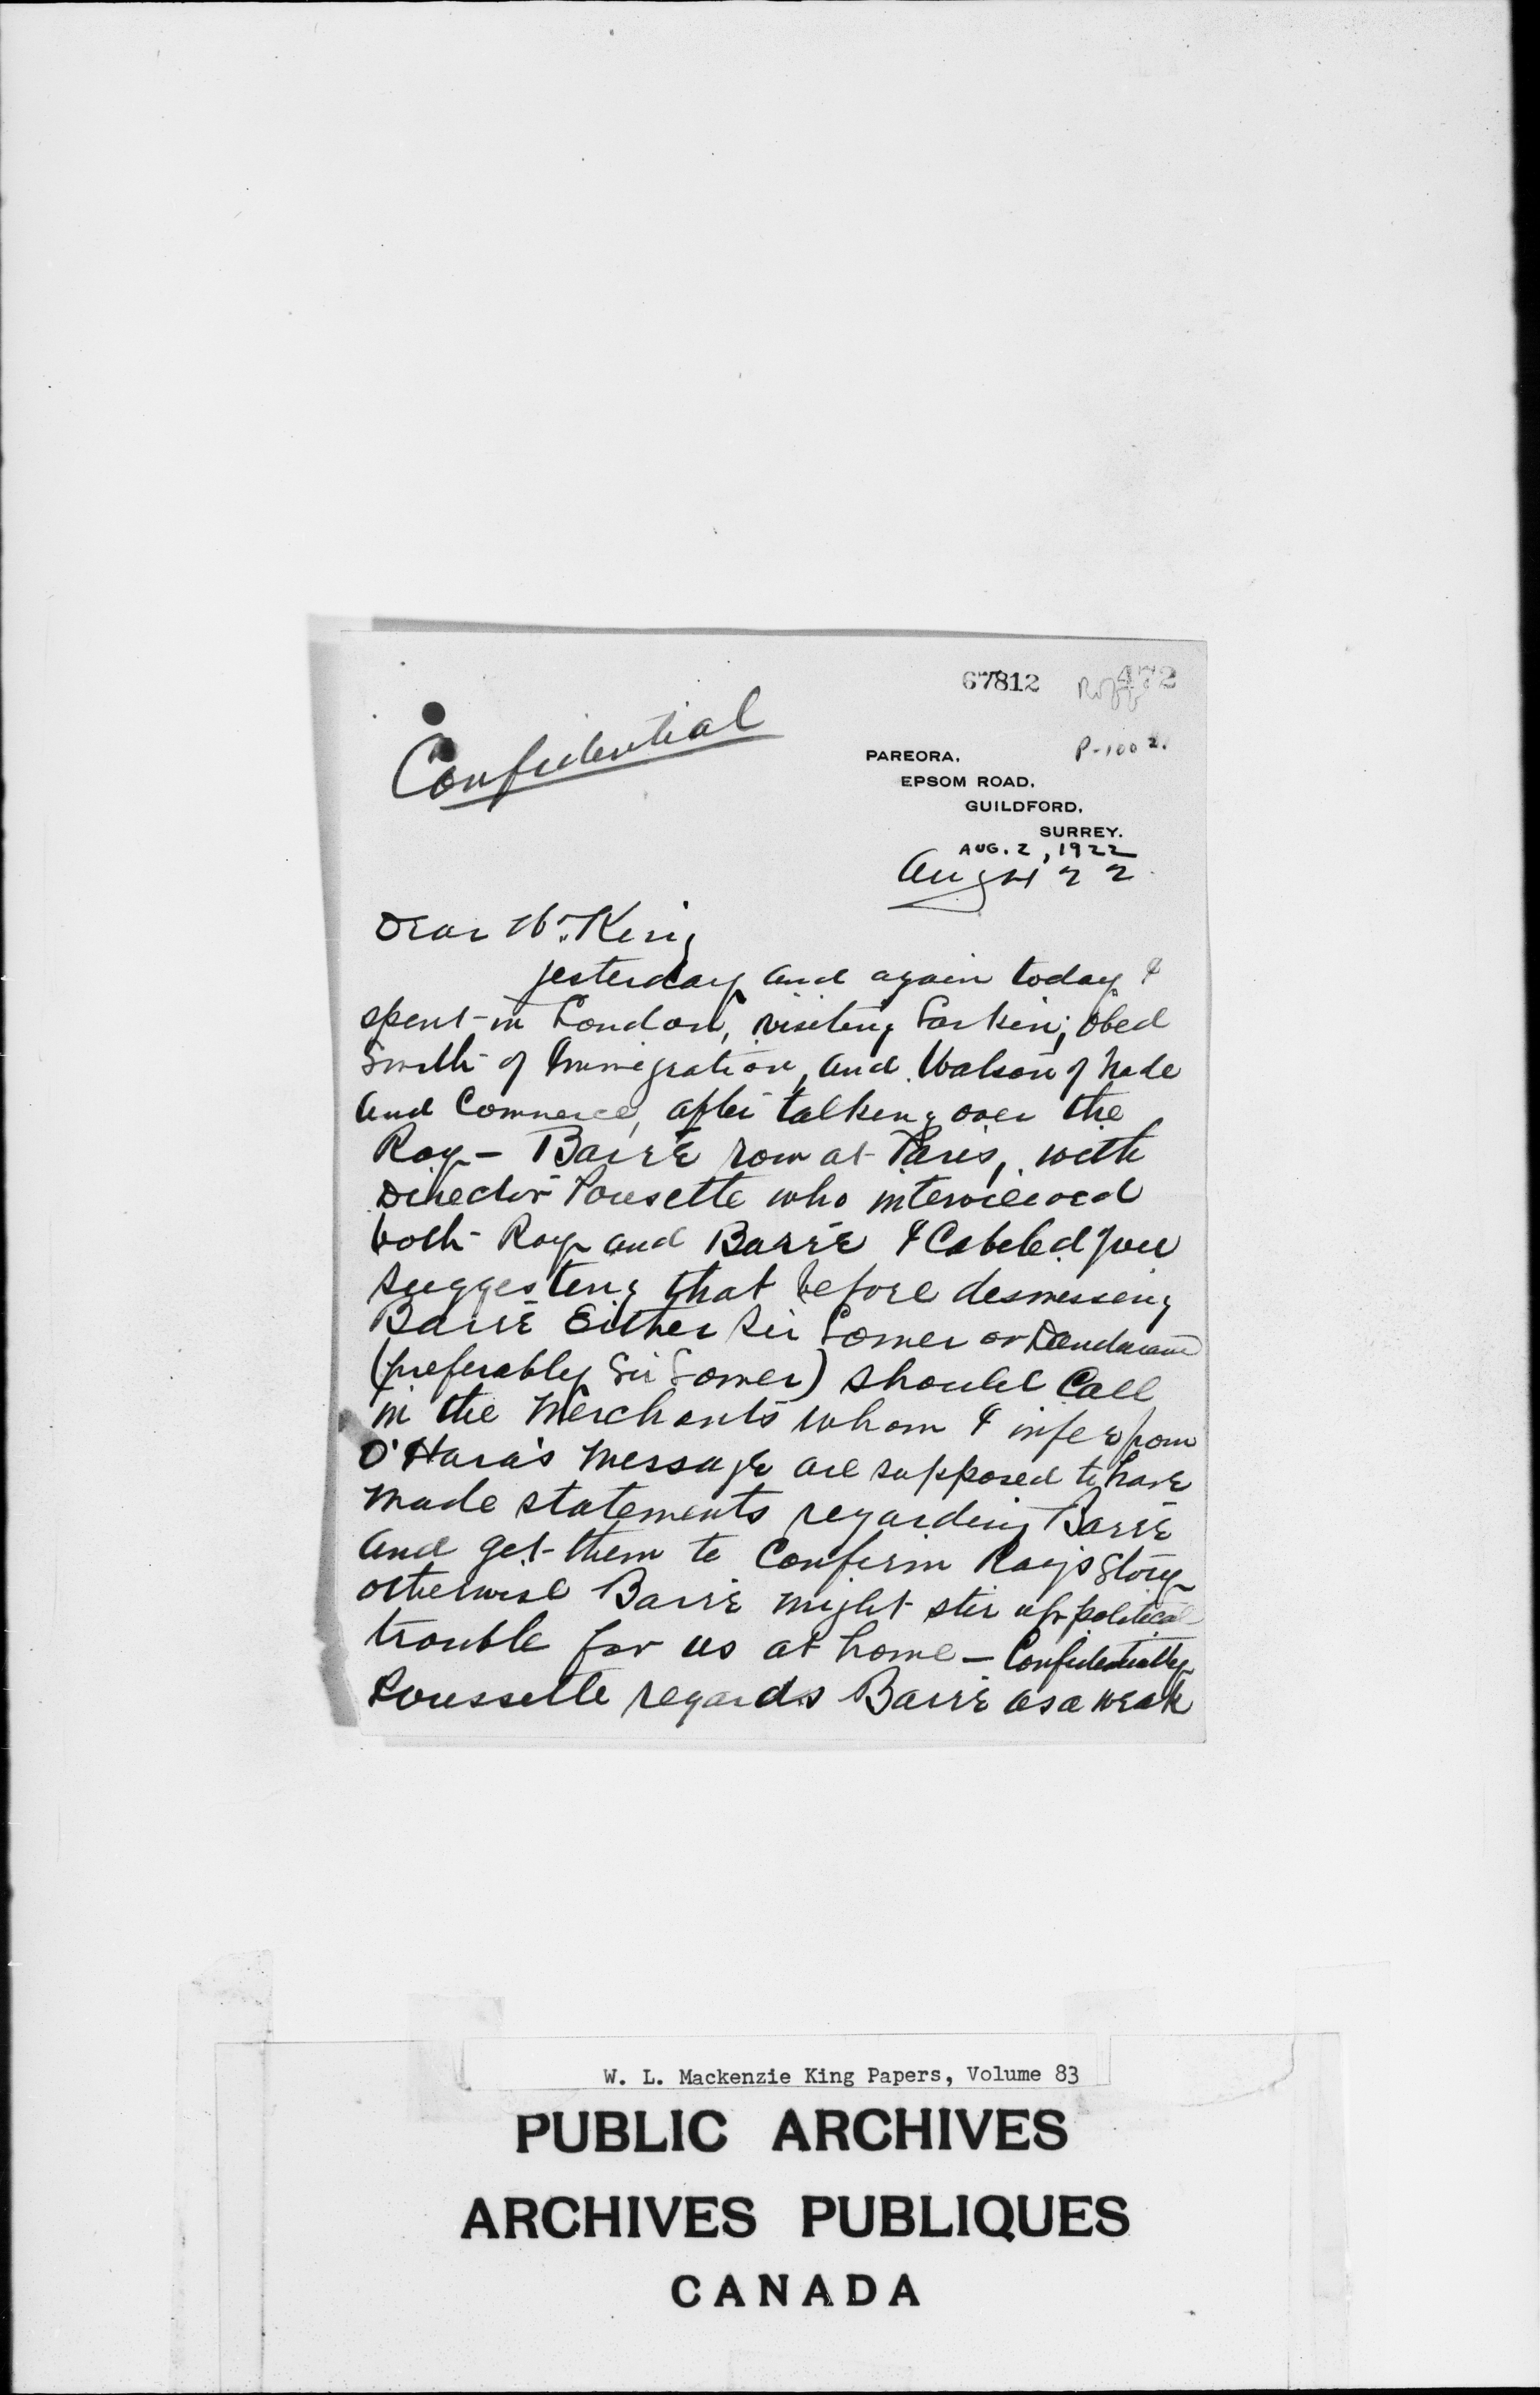 67812
472
P-100
Confidential
PAREORA.
EPSOM ROAD.
GUILDFORD.
SURREY.
AUG. 2, 1922
Aug 22
Dear Mr. King
Yesterday and again today I
spent in London, visiting Larkin; Obed
Smith of Immigration, and Watson of Trade
and Commerce, after talking over the
Roy - Barré row at Paris, with
Director Pousette who interviewed
both Roy and Barré I Cabeled you
suggesting that before dismissing
Barré Either Sir Lomer or Dandurand
(preferably Sir Lomer) should Call
in the Merchants whom I infer from
O'Hara's Message are supposed to have
made statements regarding Barré
and get them to Confirm Roy's Story
otherwise Barré might stir up political
trouble for us at home — Confidentially
Poussette regards Barré as a weak
W. L. Mackenzie King Papers, Volume 83
PUBLIC ARCHIVES
ARCHIVES PUBLIQUES
CANADA